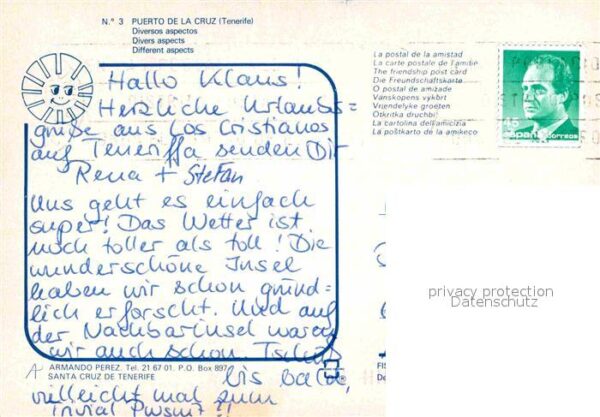 N.º 3 PUERTO DE LA CRUZ (Tenerife)
Diversos aspectos
Divers aspects
Different aspects
Hallo Klaus!
Herzliche Urlaubs=
grüße aus Los Cristianos
auf Teneriffa senden Dir
Rena + Stefan
Uns geht es einfach
super! Das Wetter ist
noch toller als toll! Die
wunderschöne Insel
haben wir schon gründ=
lich erforscht. Und auf
der Nachbarinsel waren
wir auch schon. Tschüß
bis bald,
vielleicht mal zum
Trivial !!
La postal de la amistad
La carte postale de l'amitie
The friendship post card
Die Freundschaftskarte
O postal de amizade
Vänskopens vykört
Vriendelyke groeten
Otkritka druchbi
La cartolina dell'amicizia
La poštkarto de la amikeco
45
españa correos
privacy protection
Datenschutz
ARMANDO PEREZ. Tel. 21 67 01. P.O. Box 897
SANTA CRUZ DE TENERIFE
FIS
De